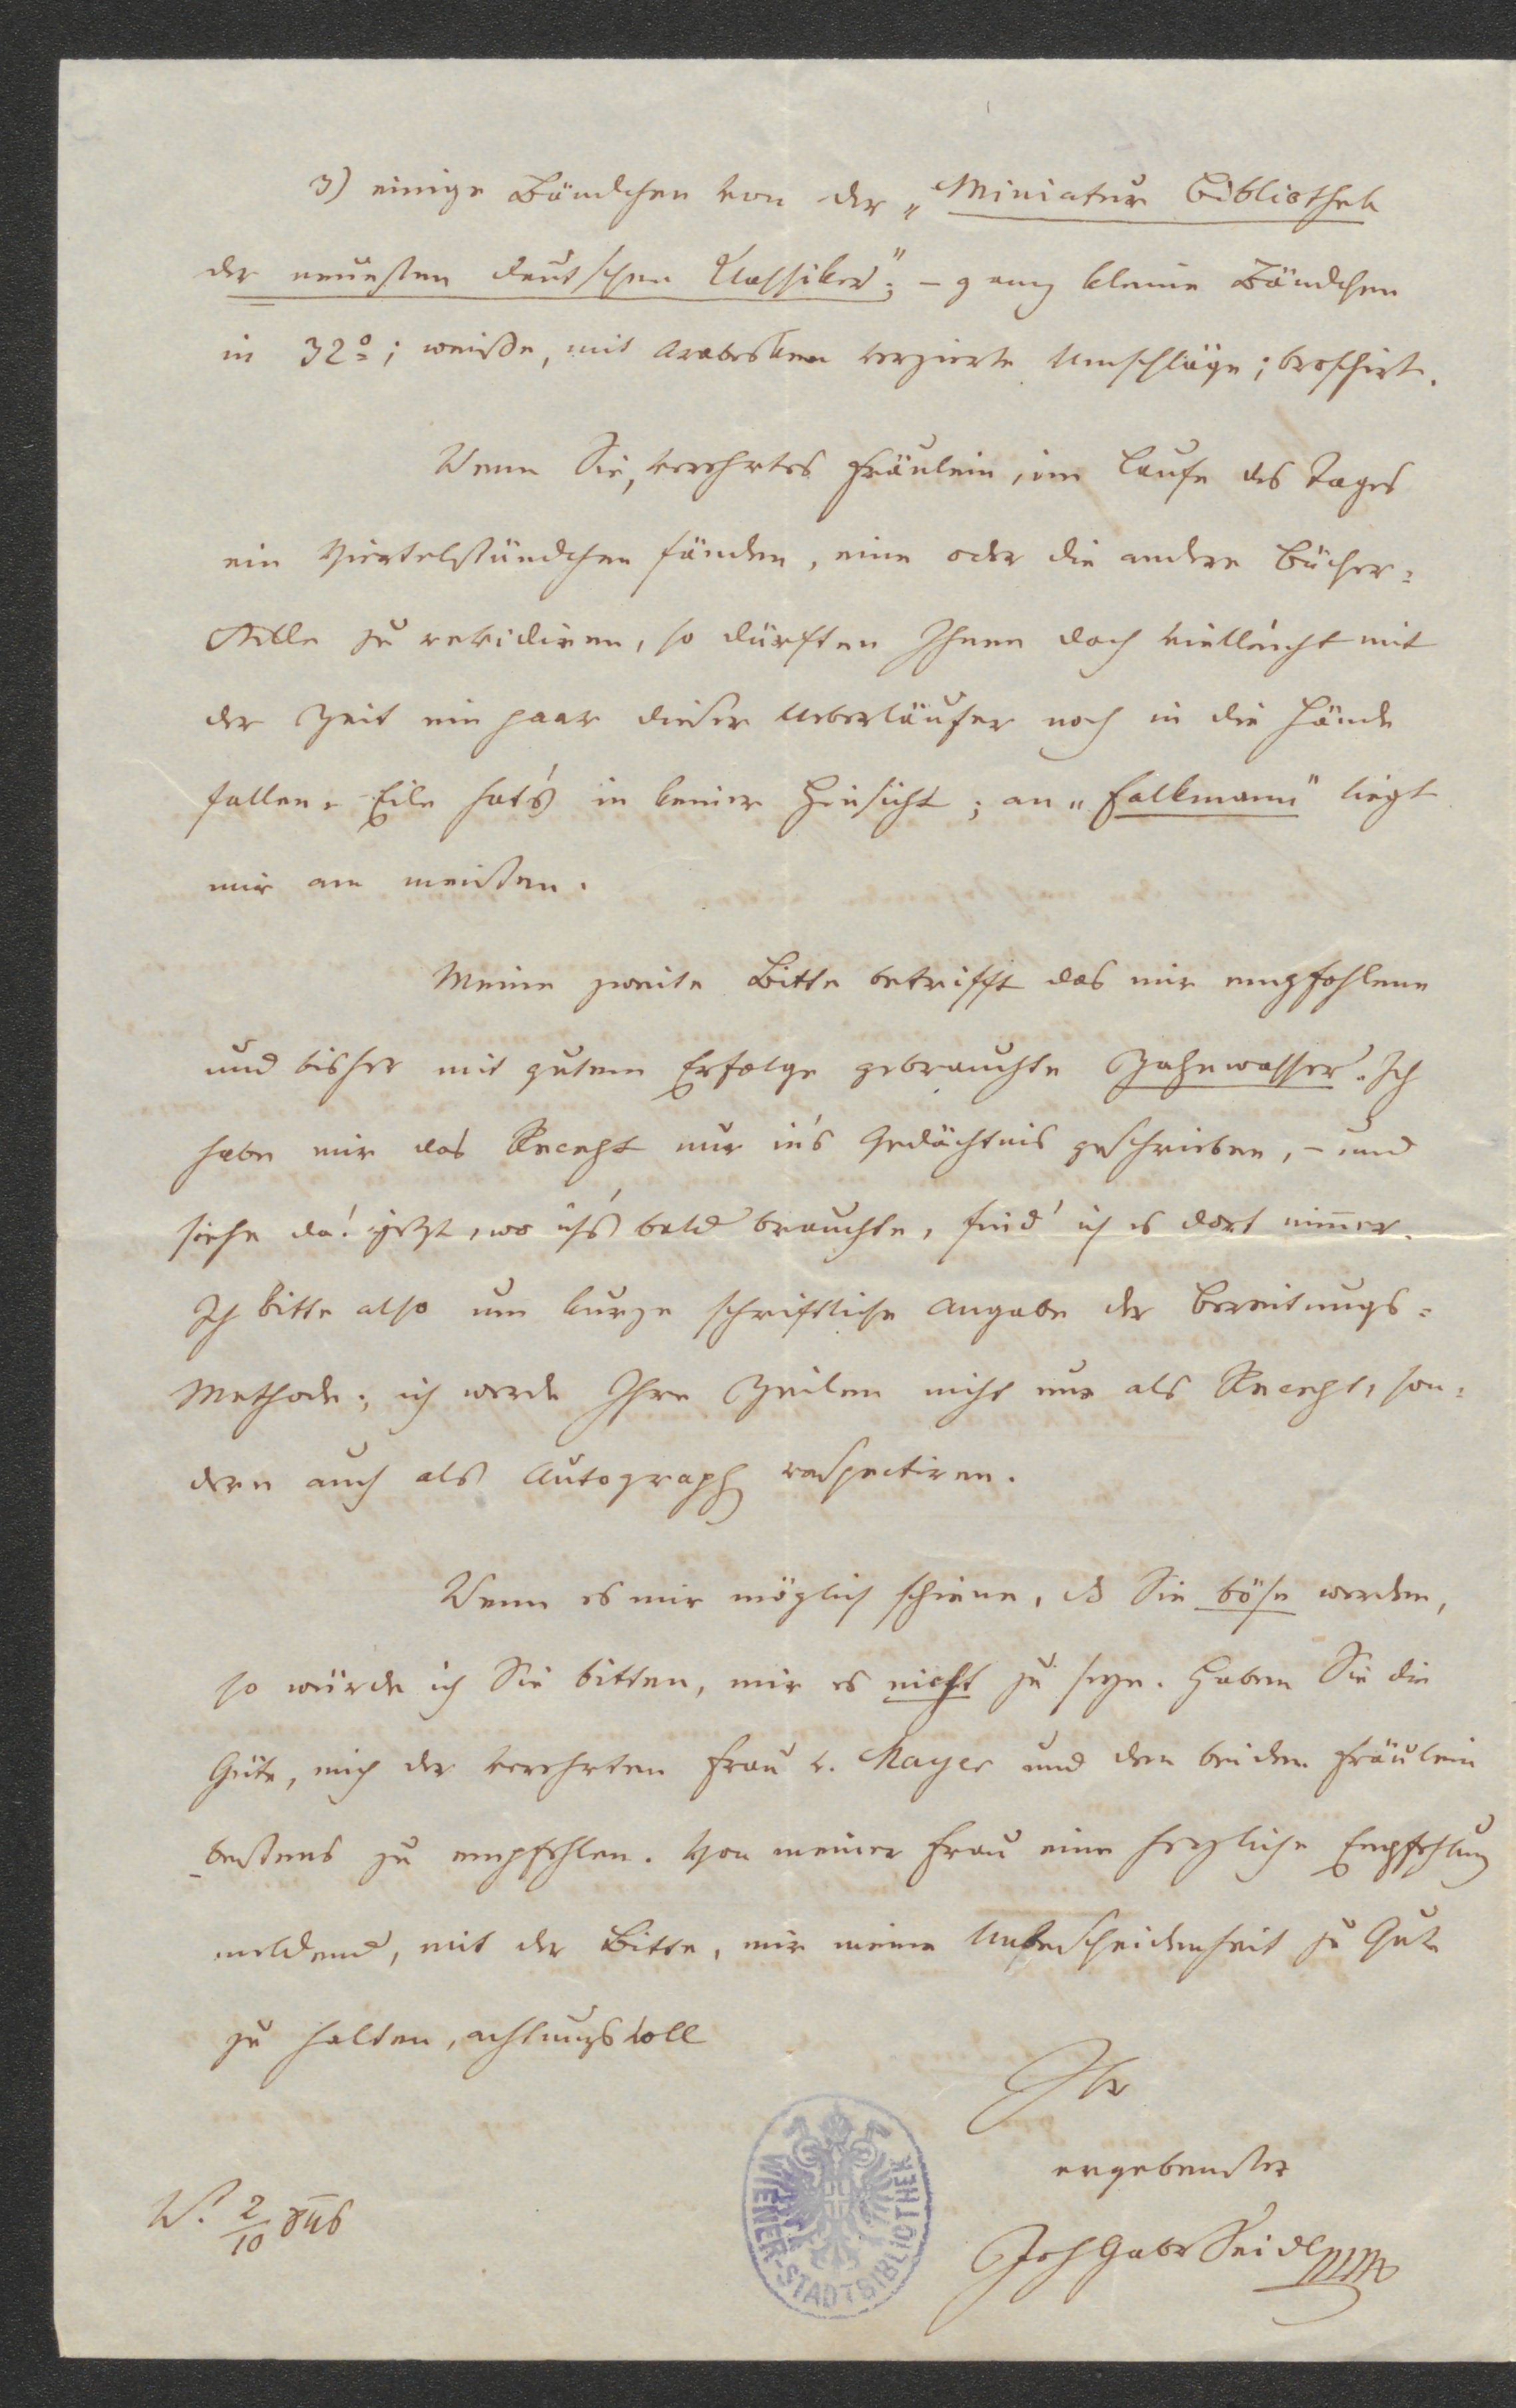 3) einige Bändchen von der „Miniatur Bibliothek
der neuesten deutschen Klassiker"; – ganz kleine Bändchen
in 32°; weiße, mit Arabesken verzierte Umschläge; broschirt.
Wenn Sie, verehrtes Fräulein, im Laufe des Tages
ein Viertelstündchen fänden, eine oder die andere Bücher=
stelle zu revidiren, so dürften Ihnen doch vielleicht mit
der Zeit ein paar dieser Ueberläufer noch in die Hände
fallen. Eile hat's in keiner Hinsicht; an „Falkmann" liegt
mir am meisten.
Meine zweite Bitte betrifft das mir empfohlene
und bisher mit gutem Erfolge gebrauchte Zahnwasser. Ich
habe mir das Recept nur in's Gedächtnis geschrieben, – und
siehe da! jetzt, wo ich's bald brauchte, find' ich es dort nim̅er.
Ich bitte also um kurze schriftliche Angabe der Bereitungs=
Methode; ich werde Ihre Zeilen nicht nur als Recept, son=
dern auch als Autograph respectiren.
Wenn es mir möglich schiene, dß Sie böse werden,
so würde ich Sie bitten, mir es nicht zu seyn. Haben Sie die
Güte, mich der verehrten Frau v. Mayer und den beiden Fräulein
bestens zu empfehlen. Von meiner Frau eine herzliche Empfehlung
meldend, mit der Bitte, mir meine Unbescheidenheit zu Gute
zu halten, achtungsvoll
Ihr
ergebenster
Joh Gabr Seidl
W. 2/10 846
WIENER-STADTBIBLIOTHEK